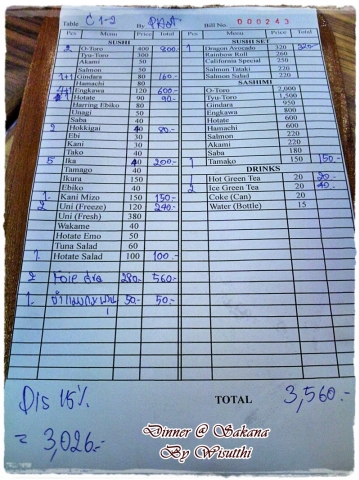 Table C 1-2 By Bill No. 000243
Pcs SUSHI Price Total
2 O-Toro 400 800.-
Tyu-Toro 300
Akami 50
Salmon 50
1+1 Gindara 80 160.-
Hamachi 80
4+1 Engkawa 120 600.-
1 Hotate 90 90.-
Harring Ebiko 80
Unagi 50
Saba 40
2 Hokkigai 40 80.-
Ebi 30
Kani 30
Tako 40
5 Ika 40 200.-
Tamago 40
Ikura 150
Ebiko 40
1. Kani Mizo 150 150.-
2 Uni (Freeze) 120 240.-
Uni (Fresh) 380
Wakame 40
Hotate Emo 50
Tuna Salad 60
1. Hotate Salad 100 100.-
2 Foie Gra 280.- 560.-
1. 50.- 50.-
Pcs SUSHI SET Price Total
1 Dragon Avocado 320 320.-
Rainbow Roll 260
California Special 250
Salmon Tataki 220
Salmon Salad 220
SASHIMI
O-Toro 2,000
Tyu-Toro 1,500
Gindara 950
Engkawa 800
Hotate 600
Hamachi 600
Salmon 220
Akami 220
Saba 180
1 Tamako 150 150.-
DRINKS
1 Hot Green Tea 20 20.-
2 Ice Green Tea 20 40.-
Coke (Can) 20
Water (Bottle) 15
TOTAL 3,560.-
Dis 15%
= 3,026.-
Dinner @ Sakana
By Wisutthi